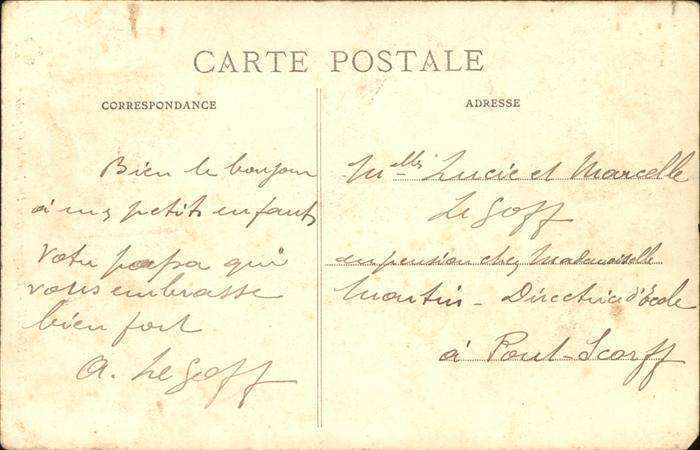 CARTE POSTALE
CORRESPONDANCE
ADRESSE
Bien le bonjour
à mes petits enfants
Votre papa qui
vous embrasse
bien fort
A. Le Goff
Melles Lucie et Marcelle
Le Goff
en pension chez Mademoiselle
Martin - Directrice d'École
à Pont-Scorff